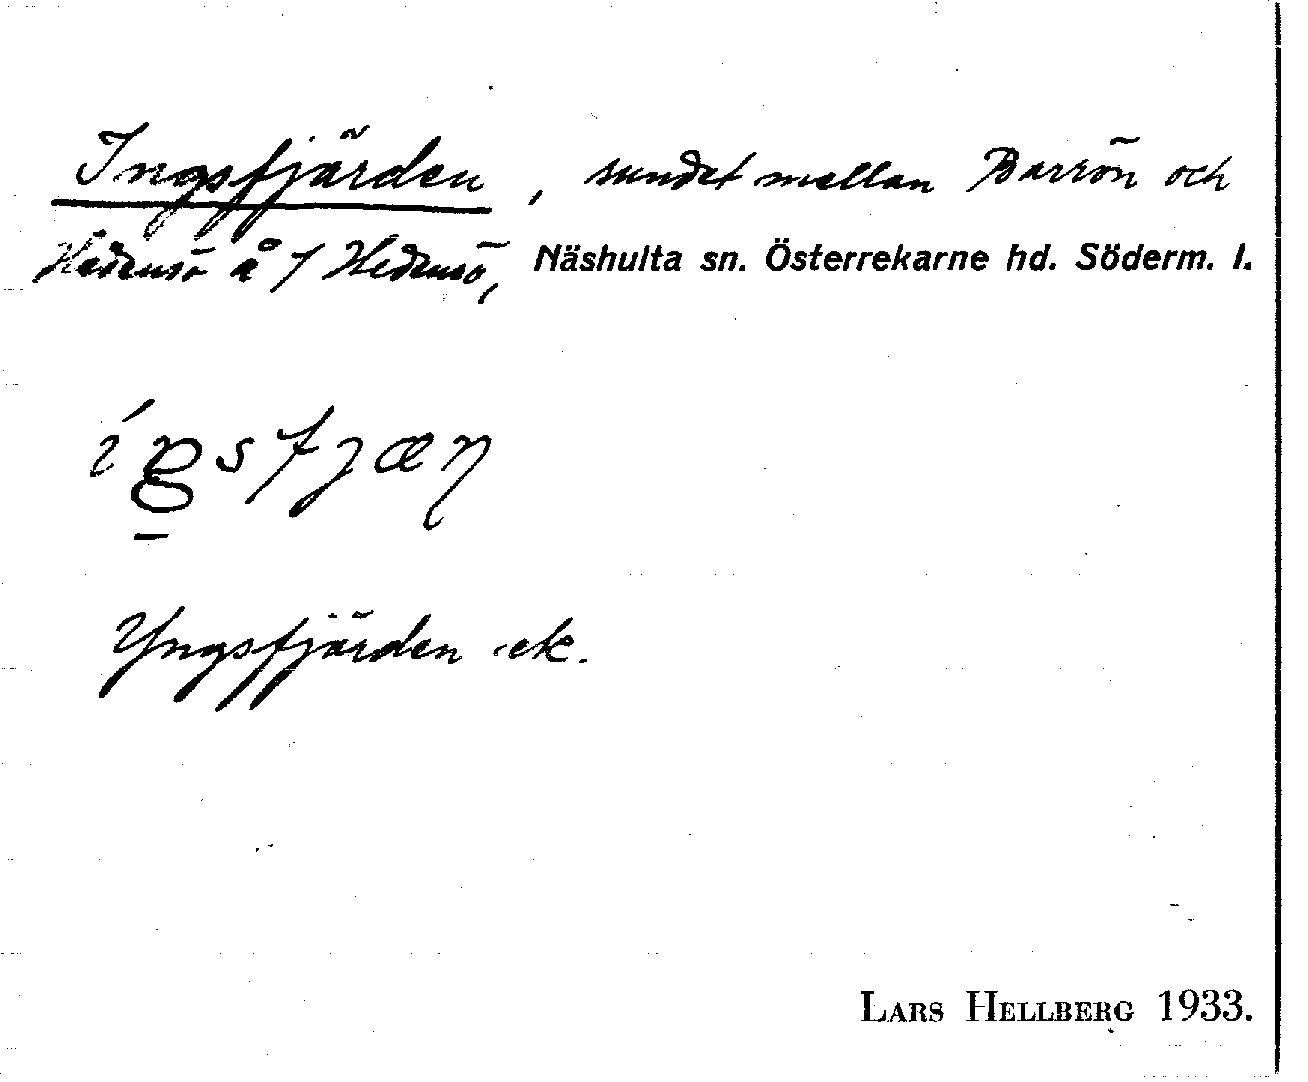 Ingsfjärden, sundet mellan Barrön och
Hedensö å f Hedensö, Näshulta sn. Österrekarne hd. Söderm. l.
Yngsfjärden ek.
LARS HELLBERG 1933.